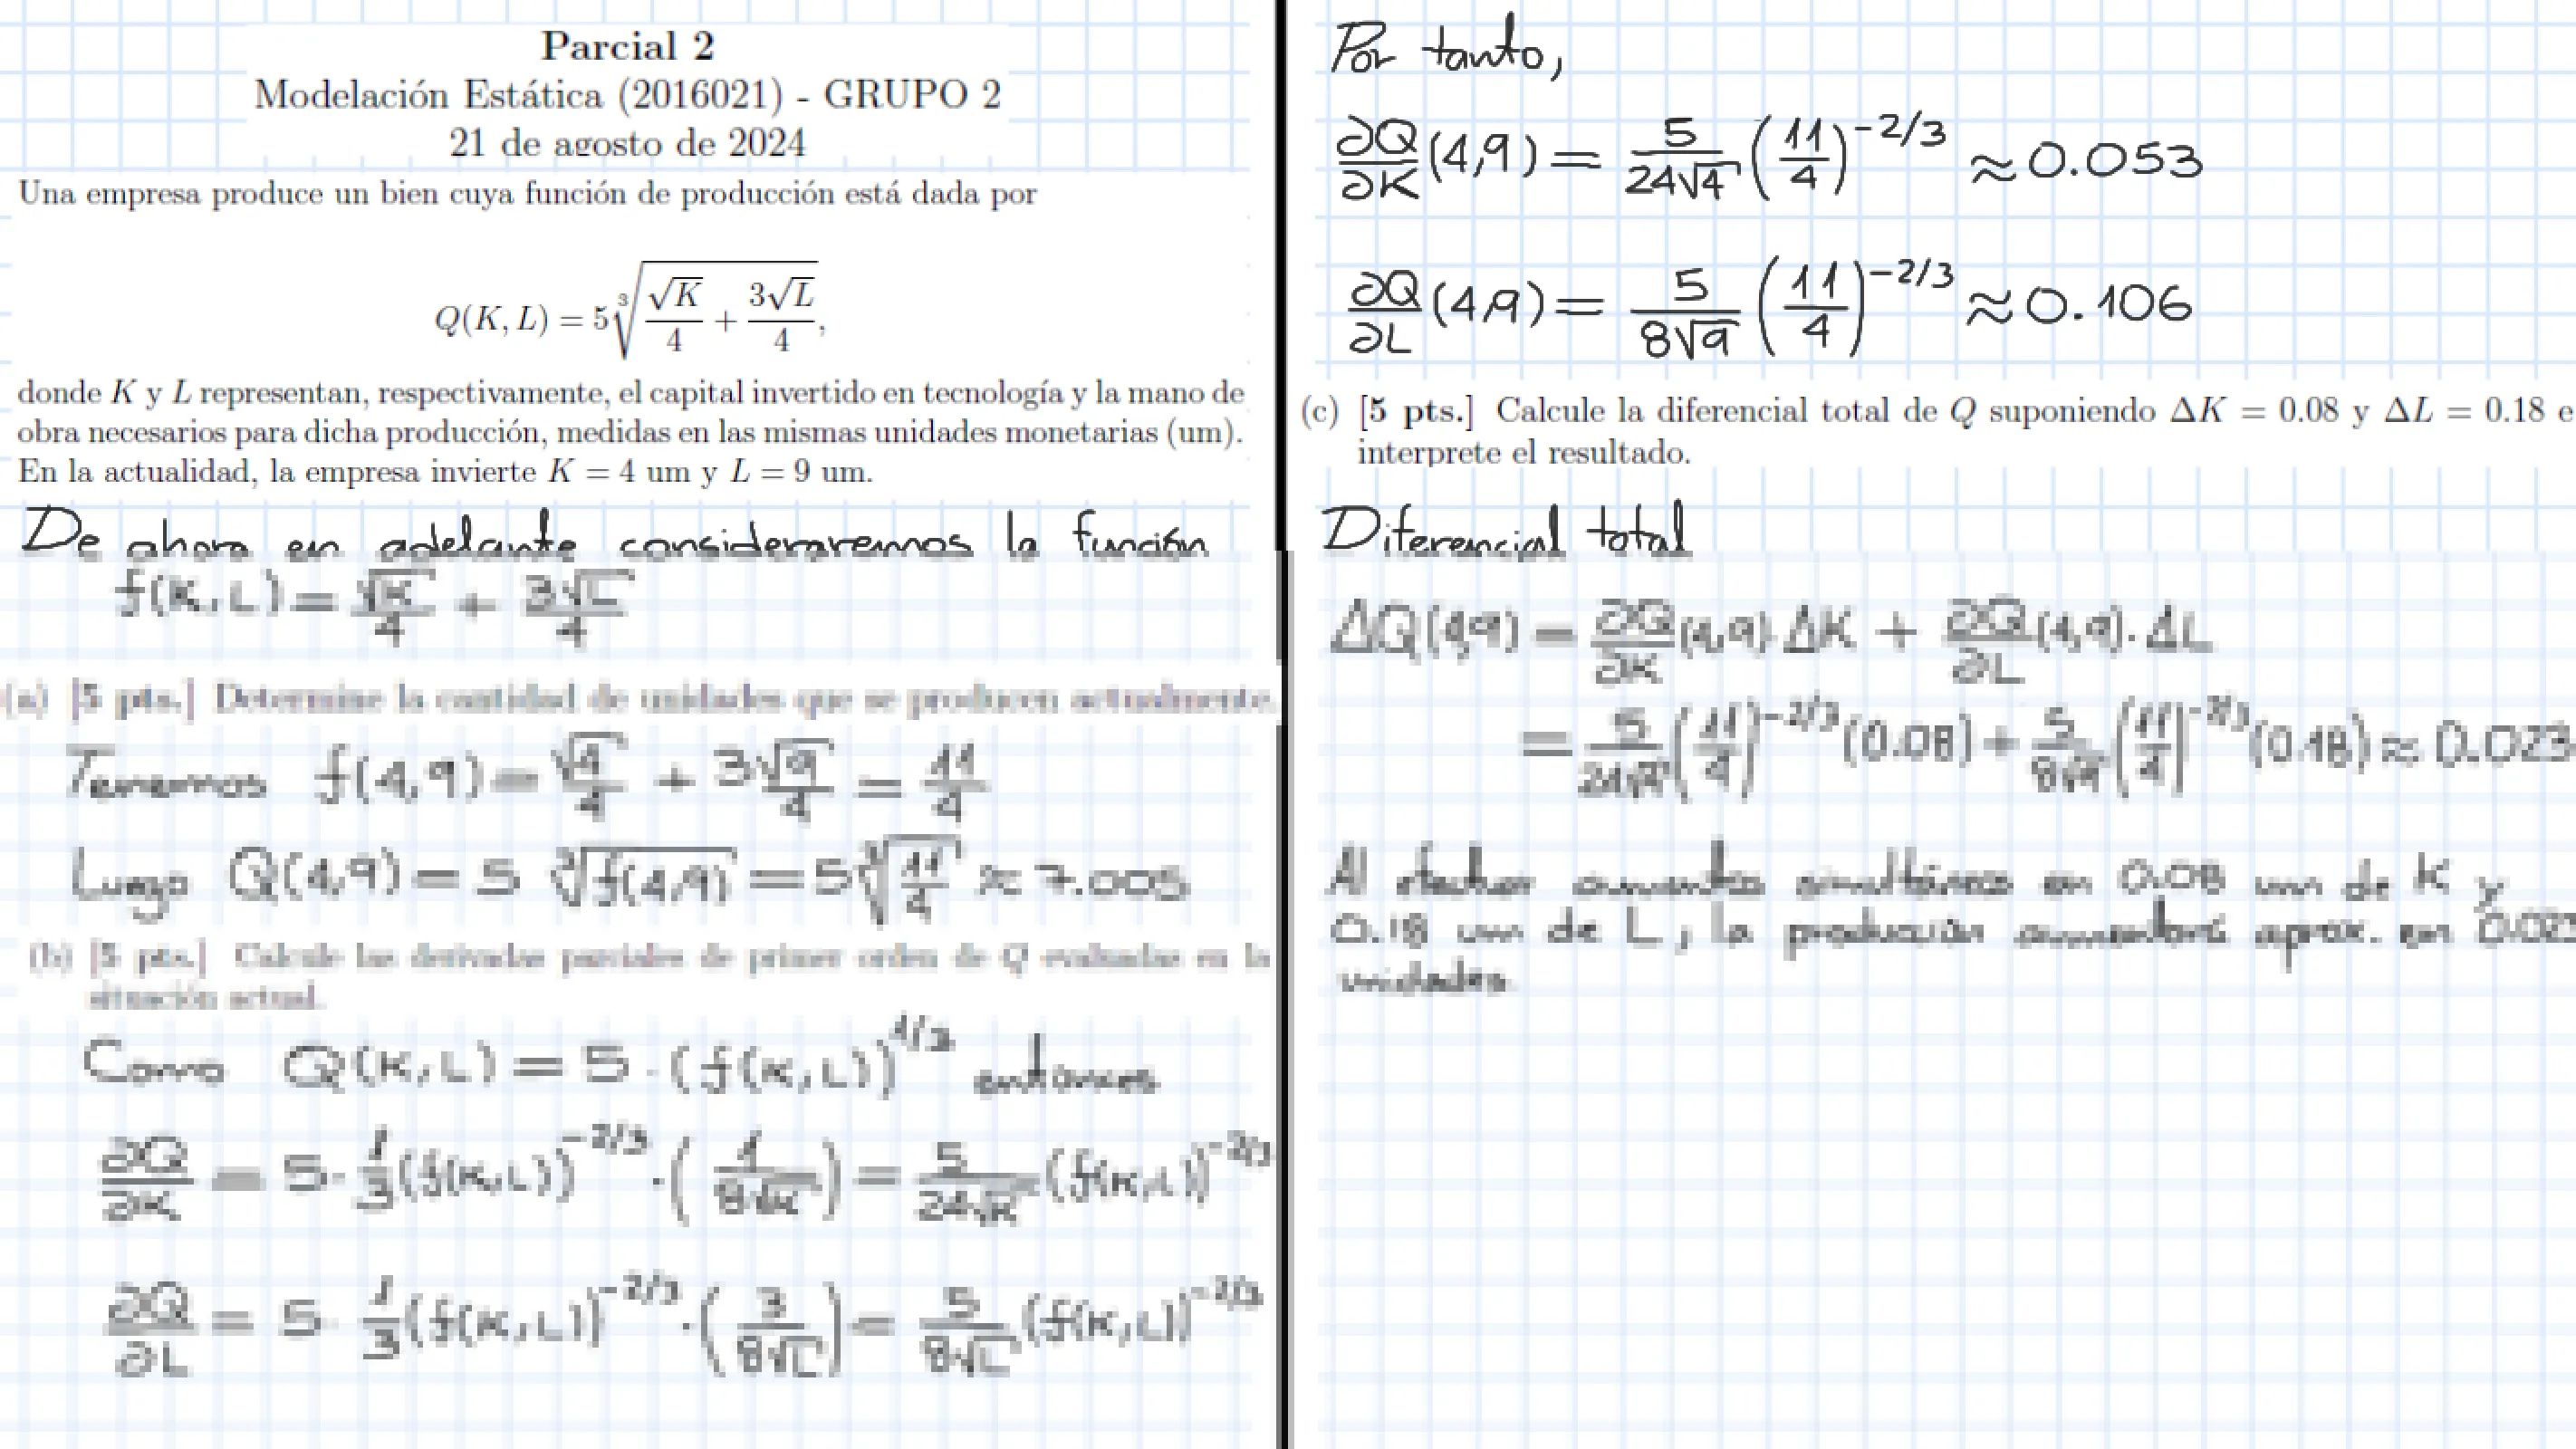 Parcial 2
Modelación Estática (2016021) - GRUPO 2
21 de agosto de 2024
Una empresa produce un bien cuya función de producción está dada por
Q(K, L) = 5∛(√K/4 + 3√L/4),
donde K y L representan, respectivamente, el capital invertido en tecnología y la mano de
obra necesarios para dicha producción, medidas en las mismas unidades monetarias (um).
En la actualidad, la empresa invierte K = 4 um y L = 9 um.
De ahora en adelante consideraremos la función
f(K,L) = √K/4 + 3√L/4
(a) [5 pts.] Determine la cantidad de unidades que se producen actualmente.
Tenemos f(4,9) = √4/4 + 3√9/4 = 11/4
Luego Q(4,9) = 5 ∛f(4,9) = 5∛(11/4) ≈ 7.005
(b) [5 pts.] Calcule las derivadas parciales de primer orden de Q evaluadas en la
situación actual.
Como Q(K,L) = 5 · (f(K,L))^1/3 entonces
∂Q/∂K = 5 · 1/3 (f(K,L))^-2/3 · (1/8√K) = 5/24√K (f(K,L))^-2/3
∂Q/∂L = 5 · 1/3 (f(K,L))^-2/3 · (3/8√L) = 5/8√L (f(K,L))^-2/3
Por tanto,
∂Q/∂K (4,9) = 5/24√4 (11/4)^-2/3 ≈ 0.053
∂Q/∂L (4,9) = 5/8√9 (11/4)^-2/3 ≈ 0.106
(c) [5 pts.] Calcule la diferencial total de Q suponiendo ΔK = 0.08 y ΔL = 0.18 e
interprete el resultado.
Diferencial total
ΔQ(4,9) = ∂Q/∂K (4,9) · ΔK + ∂Q/∂L (4,9) · ΔL
= 5/24√4 (11/4)^-2/3 (0.08) + 5/8√9 (11/4)^-2/3 (0.18) ≈ 0.023
Al efectuar aumentos simultáneos en 0.08 um de K y
0.18 um de L, la producción aumentará aprox. en 0.023
unidades